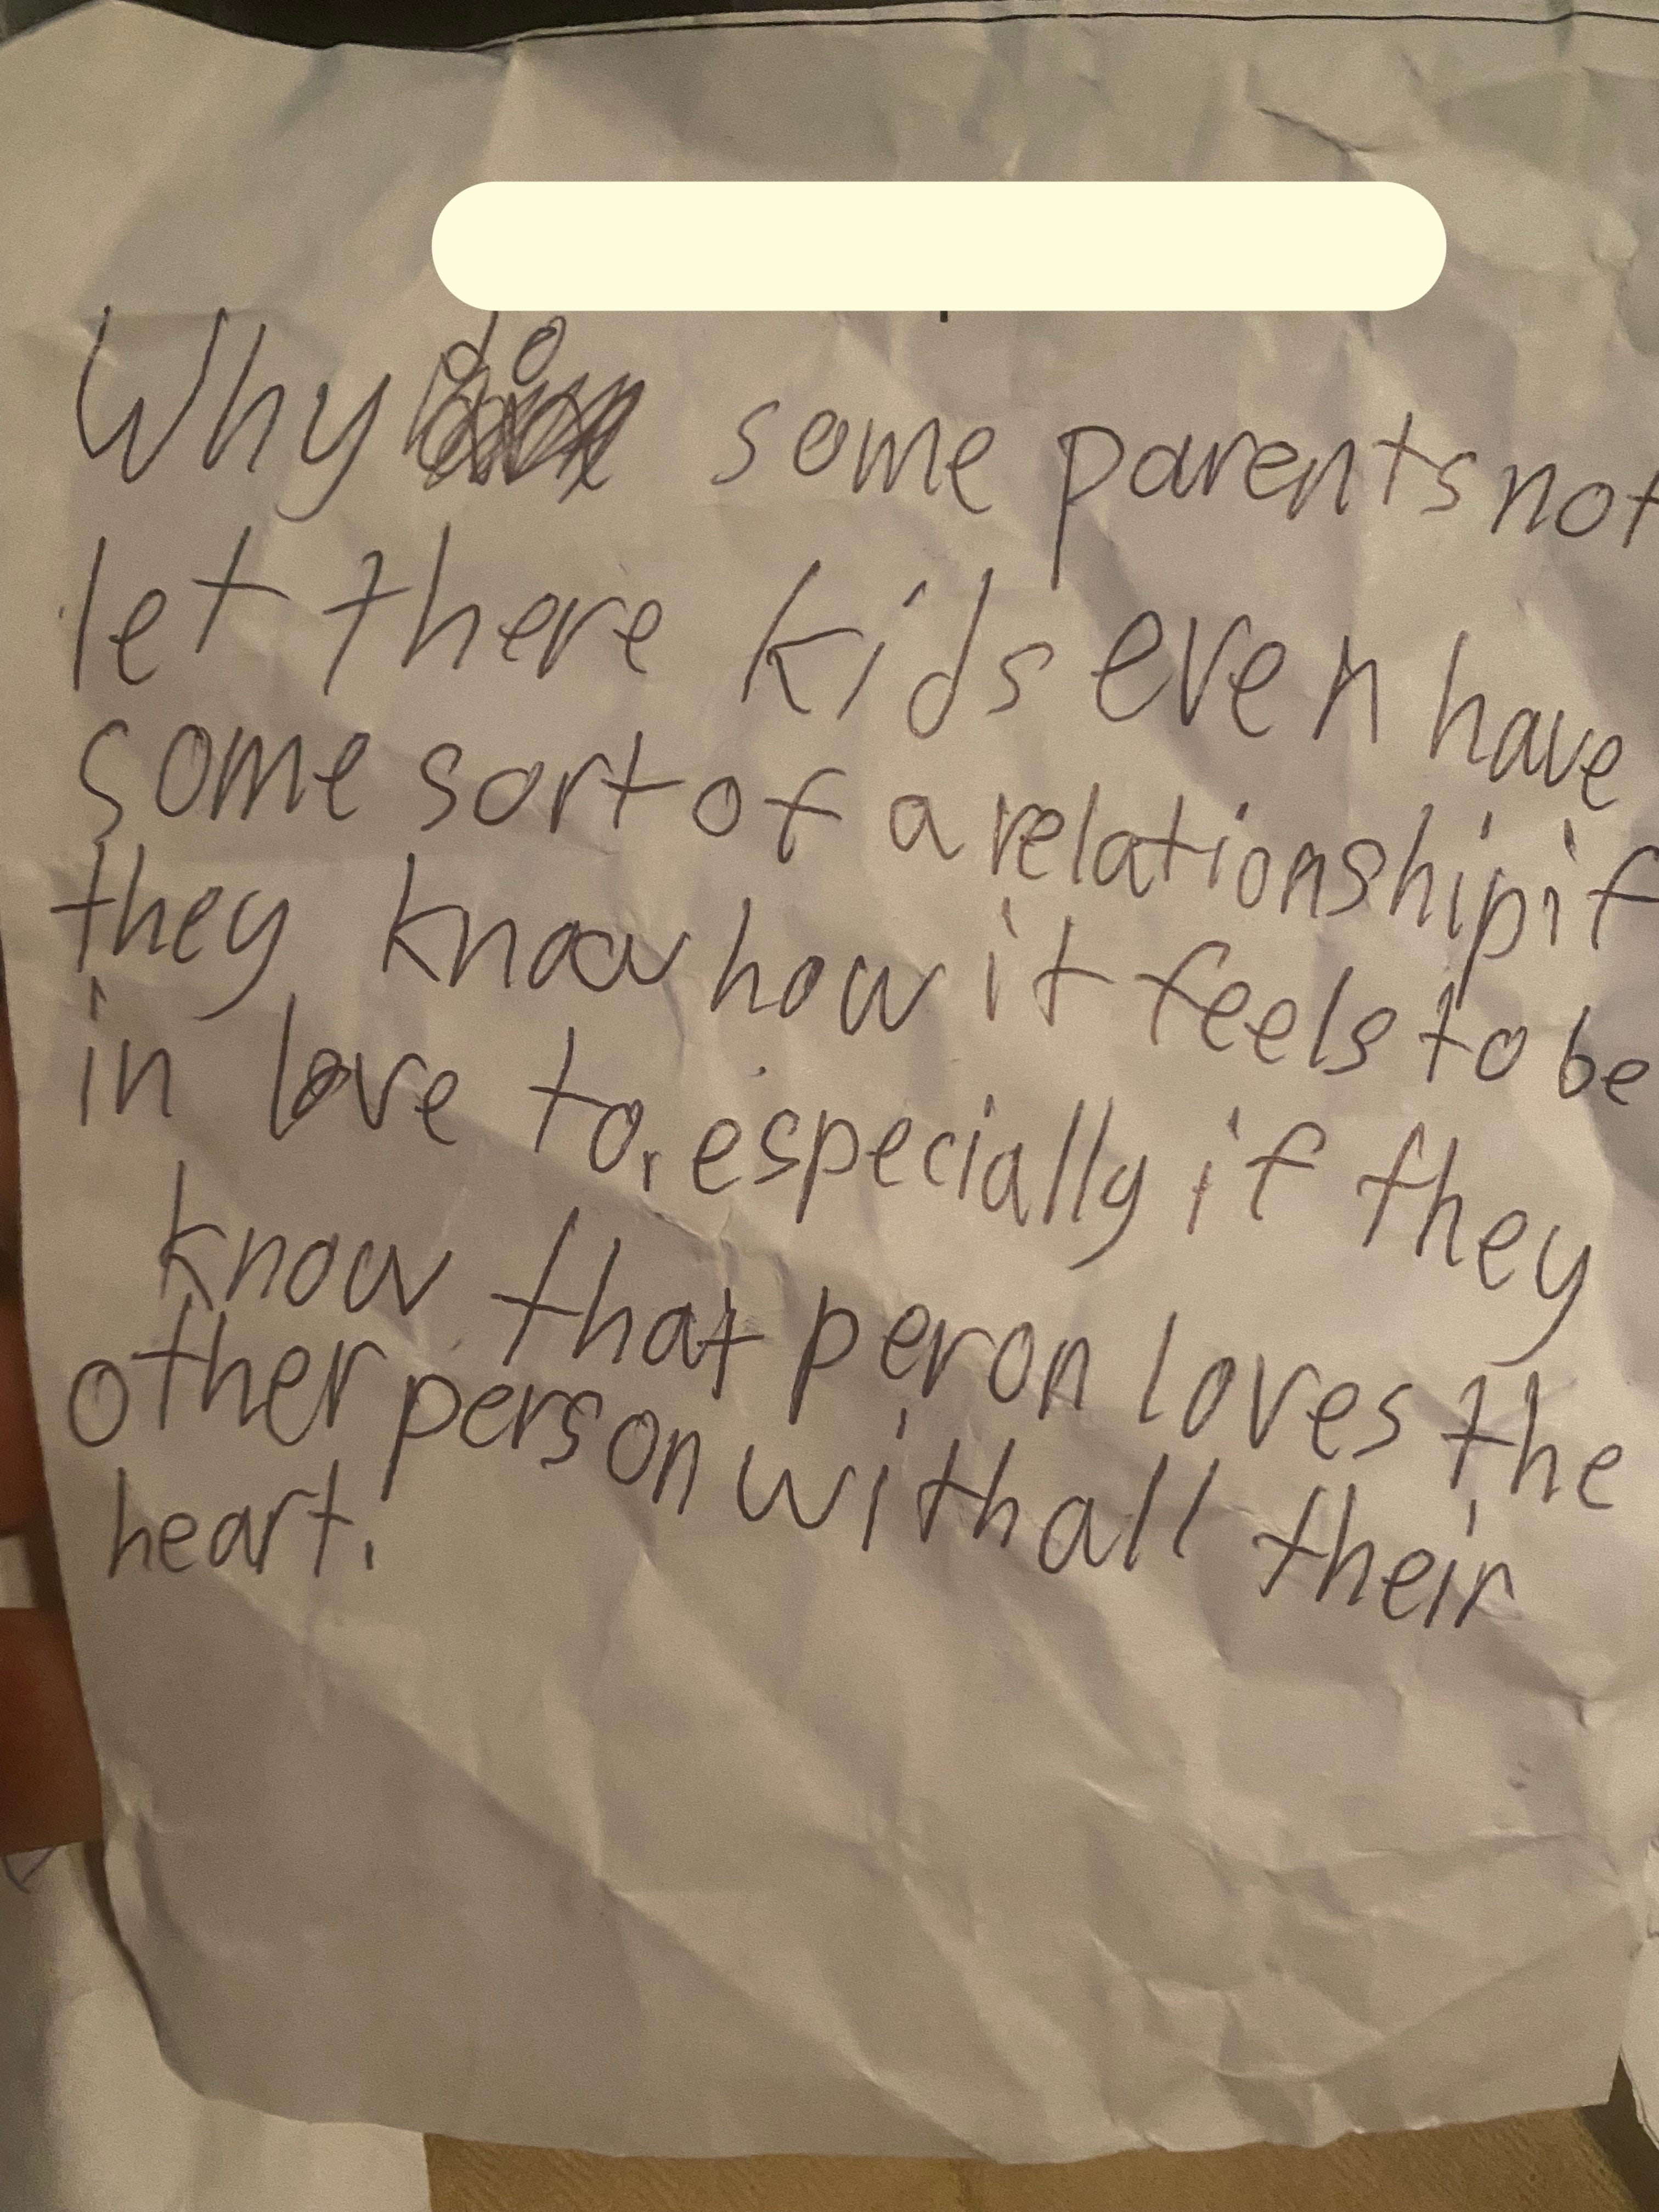 Why do some parents not
let there kids even have
some sort of a relationship if
they know how it feels to be
in love to, especially if they
know that peron loves the
other person with all their
heart.